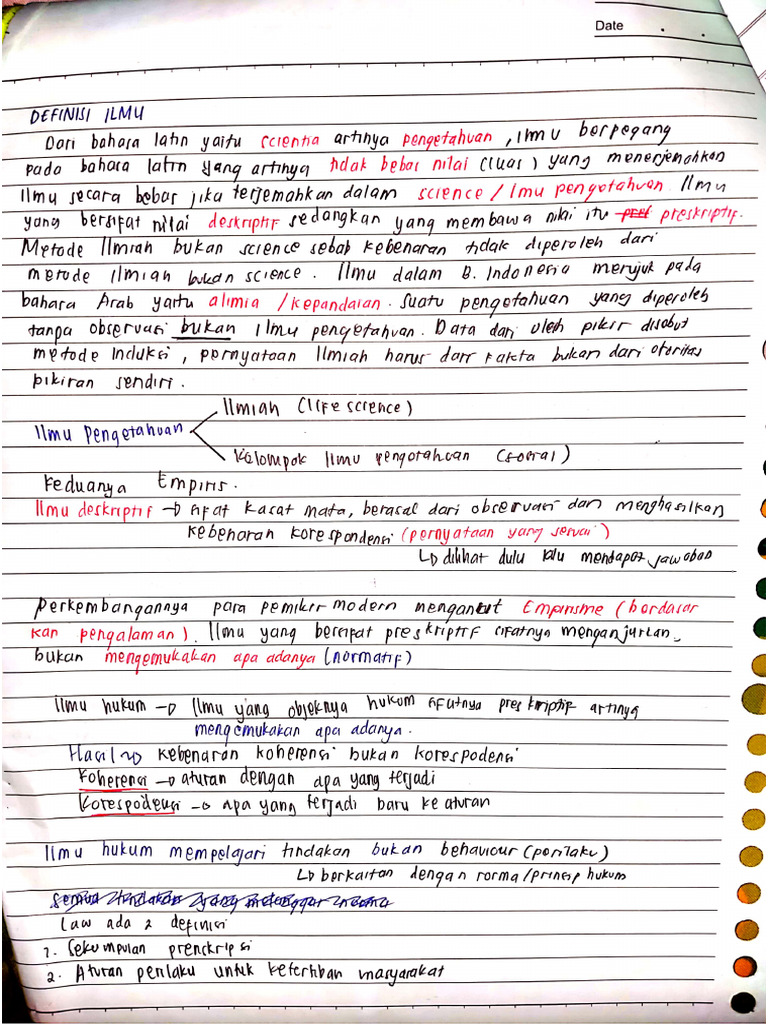 Date . .
DEFINISI ILMU
Dari bahasa latin yaitu scientia artinya pengetahuan, ilmu berpegang
pada bahasa latin yang artinya tidak bebas nilai (luas) yang menerjemahkan
Ilmu secara bebas jika terjemahkan dalam science / Imu pengetahuan Ilmu
yang bersifat nilai deskriptif sedangkan yang membawa nilai itu pref preskriptif.
Metode Ilmiah bukan science sebab kebenaran tidak diperoleh dari
metode ilmiah bukan science. Ilmu dalam B. Indonesia merujuk pada
bahasa Arab yaitu alimia / kepandaian. Suatu pengetahuan yang diperoleh
tanpa observasi bukan Ilmu pengetahuan. Data dari oleh pikir disebut
metode Induksi, pernyataan Ilmiah harus dari fakta bukan dari otoritas
pikiran sendiri.
Ilmiah (life science)
Ilmu Pengetahuan
Kelompok Ilmu pengetahuan (sosial)
Keduanya Empiris.
Ilmu deskriptif → sifat kasat mata, berasal dari observasi dan menghasilkan
kebenaran korespondensi (pernyataan yang sesuai)
↳ dilihat dulu lalu mendapat jawaban
Perkembangannya para pemikir modern menganut Empirisme (berdasar
kan pengalaman). Ilmu yang bersifat preskriptif sifatnya menganjurkan,
bukan mengemukakan apa adanya (normatif)
Ilmu hukum → Ilmu yang objeknya hukum sifatnya preskriptif artinya
mengemukakan apa adanya.
Hasil → kebenaran koherensi bukan korespodensi
Koherensi → aturan dengan apa yang terjadi
Korespodensi → apa yang terjadi baru ke aturan
Ilmu hukum mempelajari tindakan bukan behaviour (perilaku)
↳ berkaitan dengan norma/prinsip hukum
Semua tindakan yang melanggar
Law ada 2 definisi
1. Sekumpulan prenskripsi
2. Aturan perilaku untuk ketertiban masyarakat